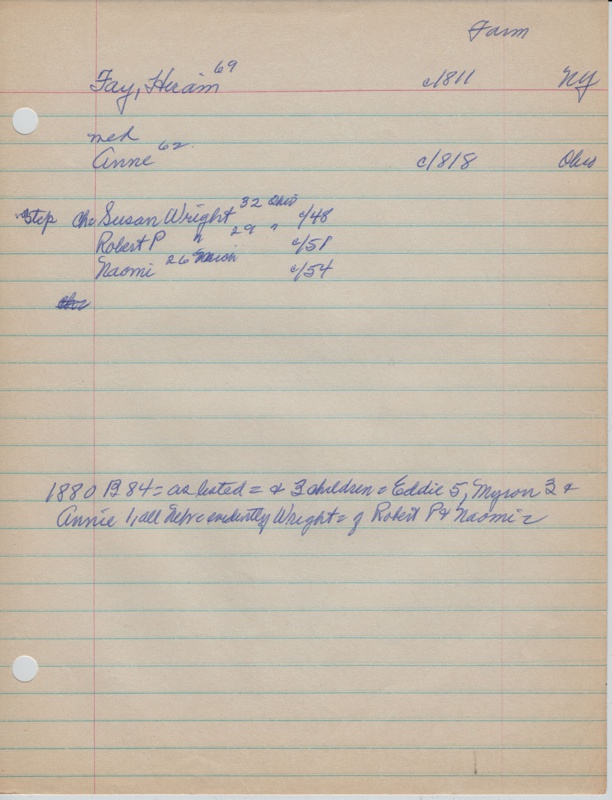 Farm
Fay, Hiram 69 c/1811 NY
med
Anne 62 c/1818 Ohio
Step chc Susan Wright 32 Ohio c/48
Robert P " 29 " c/51
Naomi 26 c/54
chc
1880 B 84 = as listed = & 3 children = Eddie 5, Myron 3 &
Annie 1, all Nebr = evidently Wright = of Robert P & Naomi =